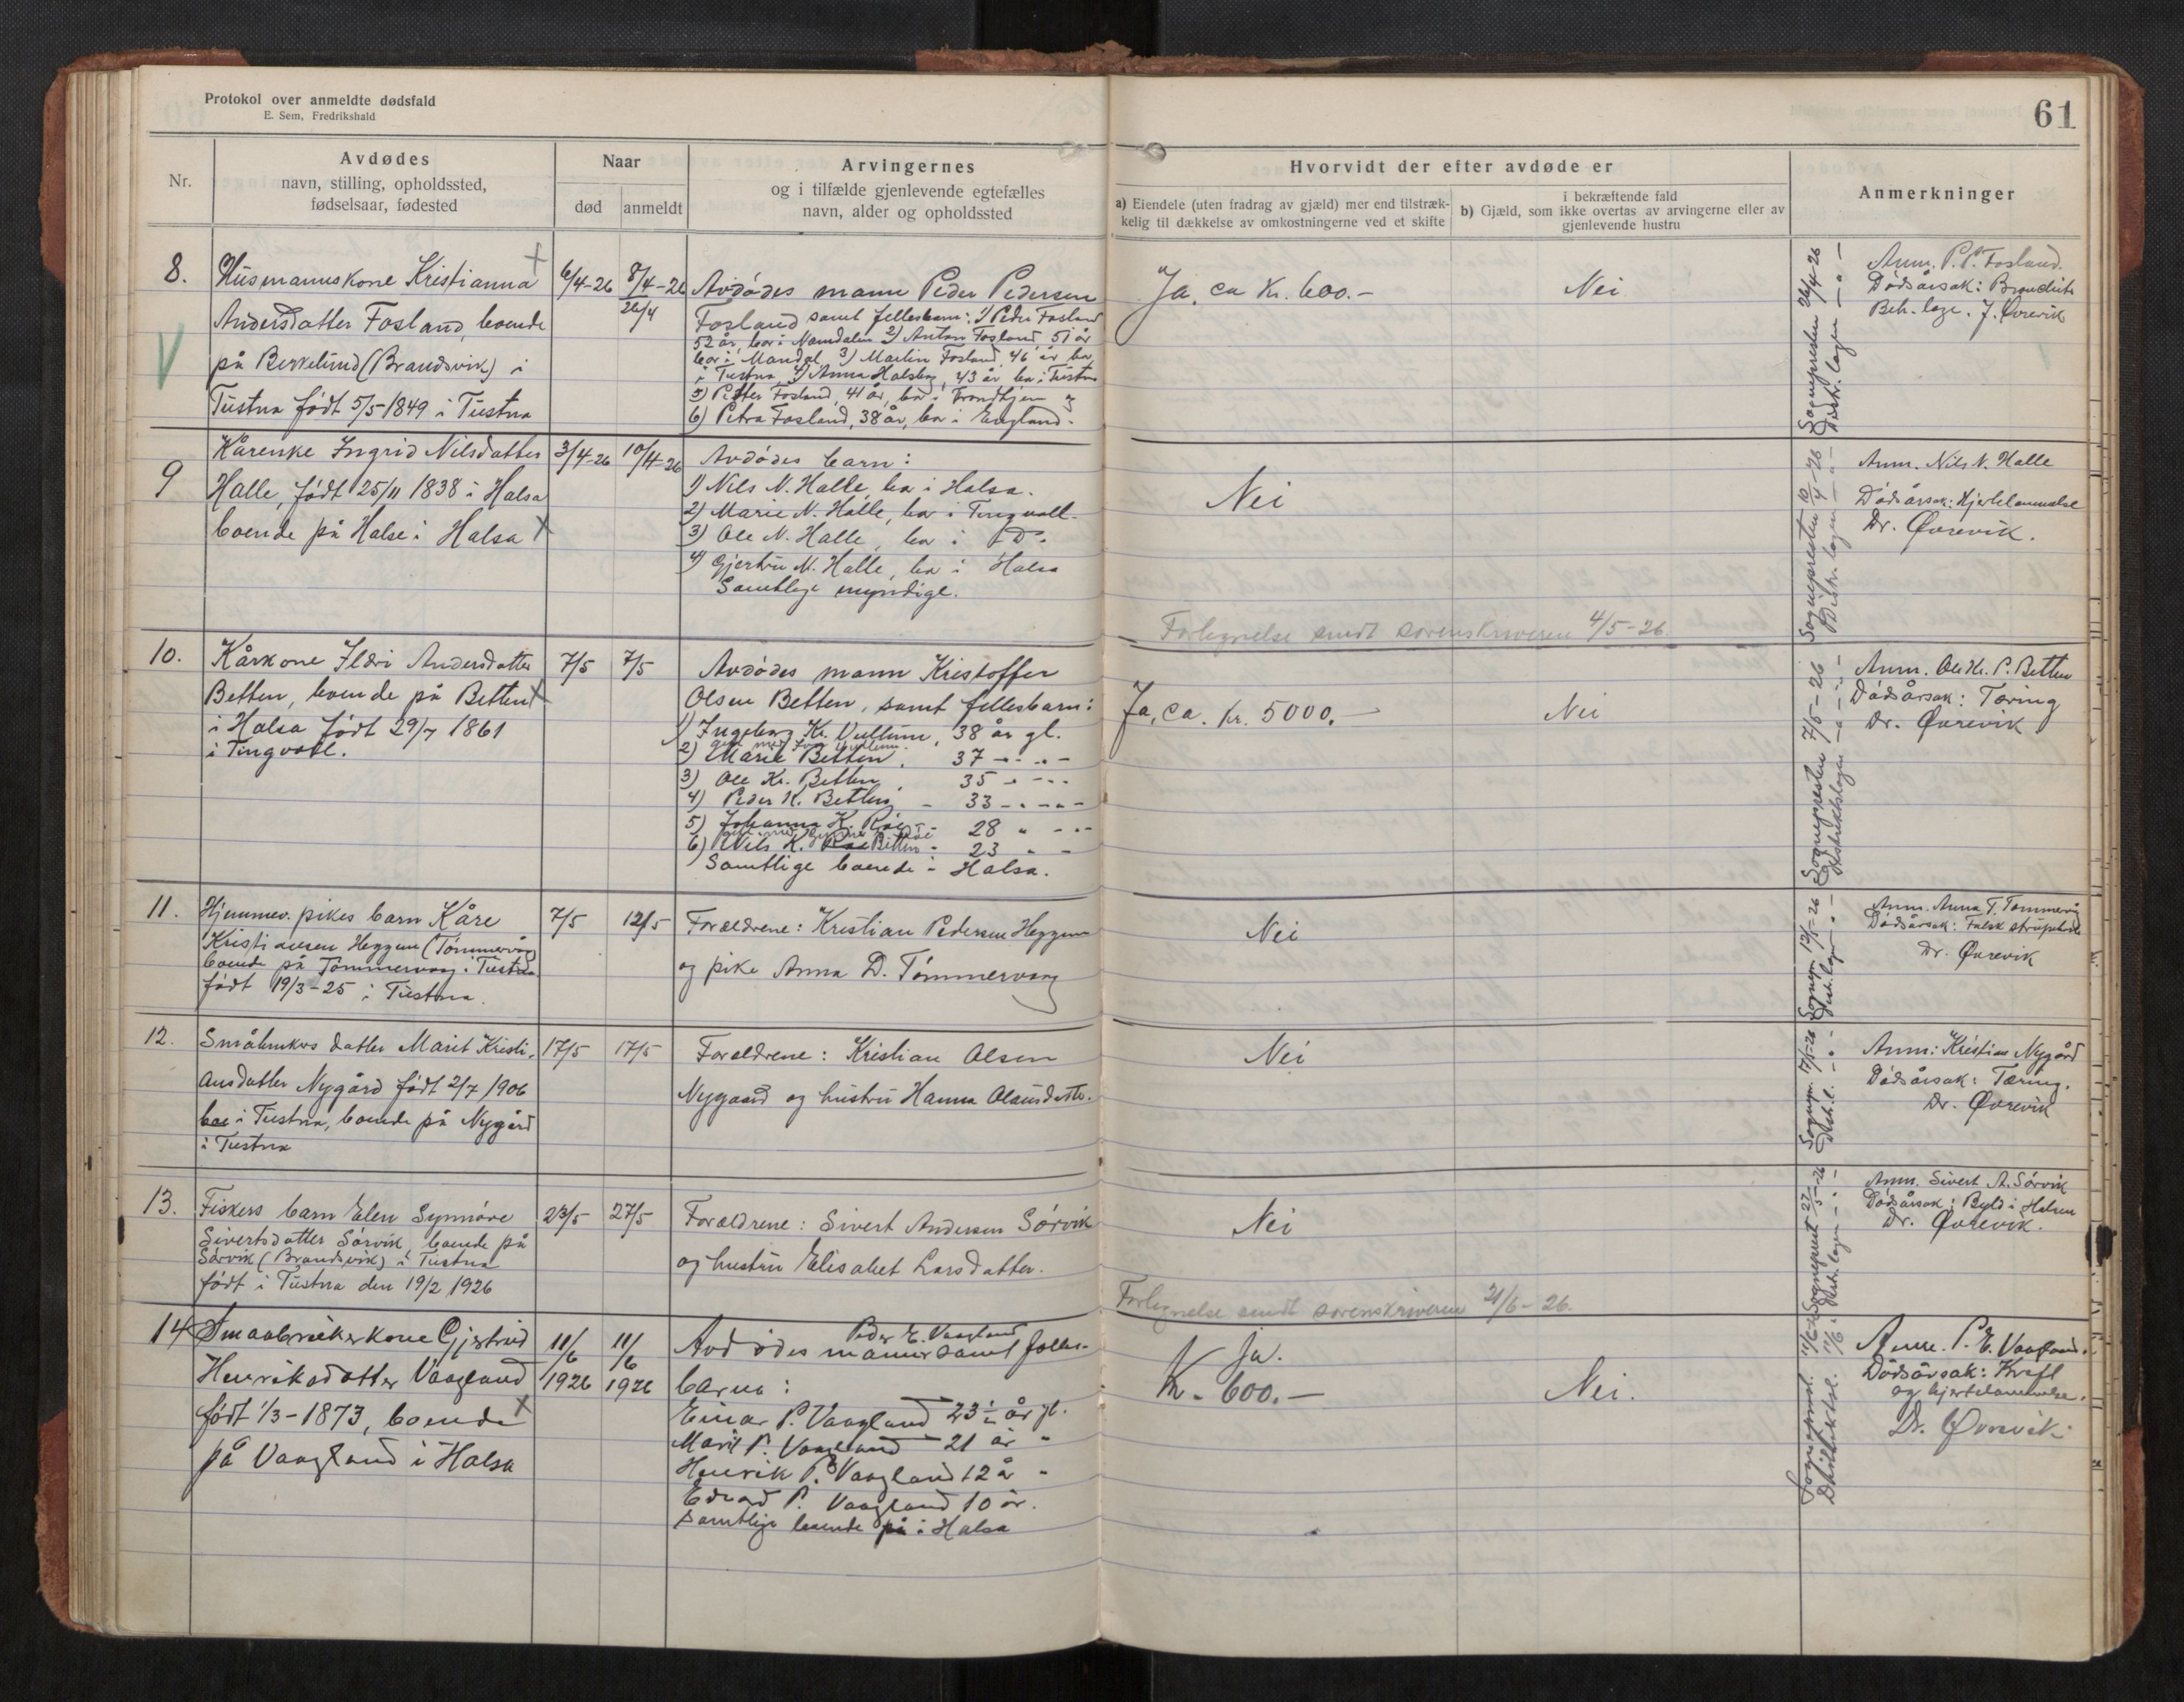 Protokol over anmeldte dødsfald
E. Sem, Fredrikshald
61
Nr.
Avdødes
navn, stilling, opholdssted,
fødselsaar, fødested
Naar
død
anmeldt
Arvingernes
og i tilfælde gjenlevende egtefælles
navn, alder og opholdssted
Hvorvidt der efter avdøde er
a) Eiendele (uten fradrag av gjæld) mer end tilstræk-
kelig til dækkelse av omkostningerne ved et skifte
i bekræftende fald
b) Gjæld, som ikke overtas av arvingerne eller av
gjenlevende hustru
Anmerkninger
8.
Husmannskone Kristianna
Andersdatter Fosland, boende
på Berkelund (Brandsvik) i
Tustna født 5/5-1849 i Tustna
6/4-26
8/4-26
26/4
Avdødes mann Peder Pedersen
Fosland samt fellesbarn: 1) Peder Fosland
52 år, bor i Namdalen 2) Anton Fosland 51 år
bor i Mandal, 3) Martin Fosland, 46 år bor
i Tustna 4) Anna Halsbog, 43 år, bor i Tustna
5) Petter Fosland, 41 år, bor i Trondhjem og
6) Petra Fosland, 38 år, bor i England.
Ja, ca kr. 600.-
Nei
Sognepresten 26/4-26
Distr. legen - " -
Anm. P. P. Fosland.
Dødsårsak: Bronchit
Beh. læge. J. Øvrevik
9
Kårenke Ingrid Nilsdatter
Halle, født 25/11 1838 i Halsa
boende på Halse i Halsa
3/4-26
10/4-26
Avdødes barn:
1) Nils N. Halle, bor i Halsa.
2) Marie N. Halle, bor i Tingvoll.
3) Ole N. Halle, bor i D:
4) Gjertru N. Halle, bor i Halsa
Samtlige myndige.
Nei
Sognepresten 10/4-26
Distr. legen - " -
Anm. Nils N. Halle
Dødsårsak: Hjertelammelse
Dr. Øvrevik.
Fortegnelse sendt sorenskriveren 4/5-26.
10.
Kårkone Ildri Andersdatter
Betten, boende på Betten
i Halsa født 29/7 1861
i Tingvoll.
7/5
7/5
Avdødes mann Kristoffer
Olsen Betten, samt fellesbarn:
1) Ingeborg Kr. Vullum, 38 år gl.
2) Marie Betten, 37 - " -
3) Ole Kr. Betten, 35 - " -
4) Peder K. Betten, - 33 - " -
5) Johanna K. Røe - 28 " -
6) Nils K. Røe Betten - 23 - -
Samtlige boende i Halsa.
Ja, ca. kr. 5000.-
Nei
Sognepresten 7/5-26
Distriktslegen - " -
Anm. Ole Kr. P. Betten
Dødsårsak: Tæring
Dr. Øvrevik
11.
Hjemmev. pikes barn Kåre
Kristiansen Heggem (Tømmervåg)
boende på Tømmervaag i Tustna
født 19/3-25 i Tustna.
7/5
12/5
Foreldrene: Kristian Pedersen Heggem
og pike Anna D. Tømmervaag
Nei
Sognepr. 12/5-26
Distr. legen - " -
Anm. Anna T. Tømmervåg
Dødsårsak: Falsk strupehoste
Dr. Øvrevik
12.
Småbrukers datter Marit Kristi-
ansdatter Nygård født 2/7 1906
boe i Tustna, boende på Nygård
i Tustna
17/5
17/5
Foreldrene: Kristian Olsen
Nygaard og hustru Hanna Olausdatter.
Nei
Sognepr. 17/5-26
Distr. l. - " -
Anm: Kristian Nygård
Dødsårsak: Tæring.
Dr. Øvrevik
13.
Fiskers barn Elen Synnøve
Sivertsdatter Sørvik, boende på
Sørvik (Brandsvik) i Tustna
født i Tustna den 19/2 1926
23/5
27/5
Foreldrene: Sivert Andersen Sørvik
og hustru Elisabet Larsdatter.
Nei
Sogneprest 27/5-26
Distr. legen - " -
Anm. Sivert A. Sørvik
Dødsårsak: Byld i Halsen
Dr. Øvrevik.
Fortegnelse sendt sorenskriveren 21/6-26.
14
Smaabrukerkone Gjertrud
Henriksdatter Vaagland
født 1/3-1873, boende
på Vaagland i Halsa
11/6
1926
11/6
1926
Peder E. Vaagland
Avdødes mann samt felles-
barn:
Einar P. Vaagland 23 1/2 år gl.
Marit P. Vaagland 21 år "
Henrik P. Vaagland 12 år "
Edvard P. Vaagland 10 år.
Samtlige boende på i Halsa
Ja.
Kr. 600.-
Nei.
Sogneprest. 11/6-26
Distriktsl. 11/6 -
Anm. P. E. Vaagland.
Dødsårsak: Kreft
og hjertelammelse.
Dr. Øvrevik